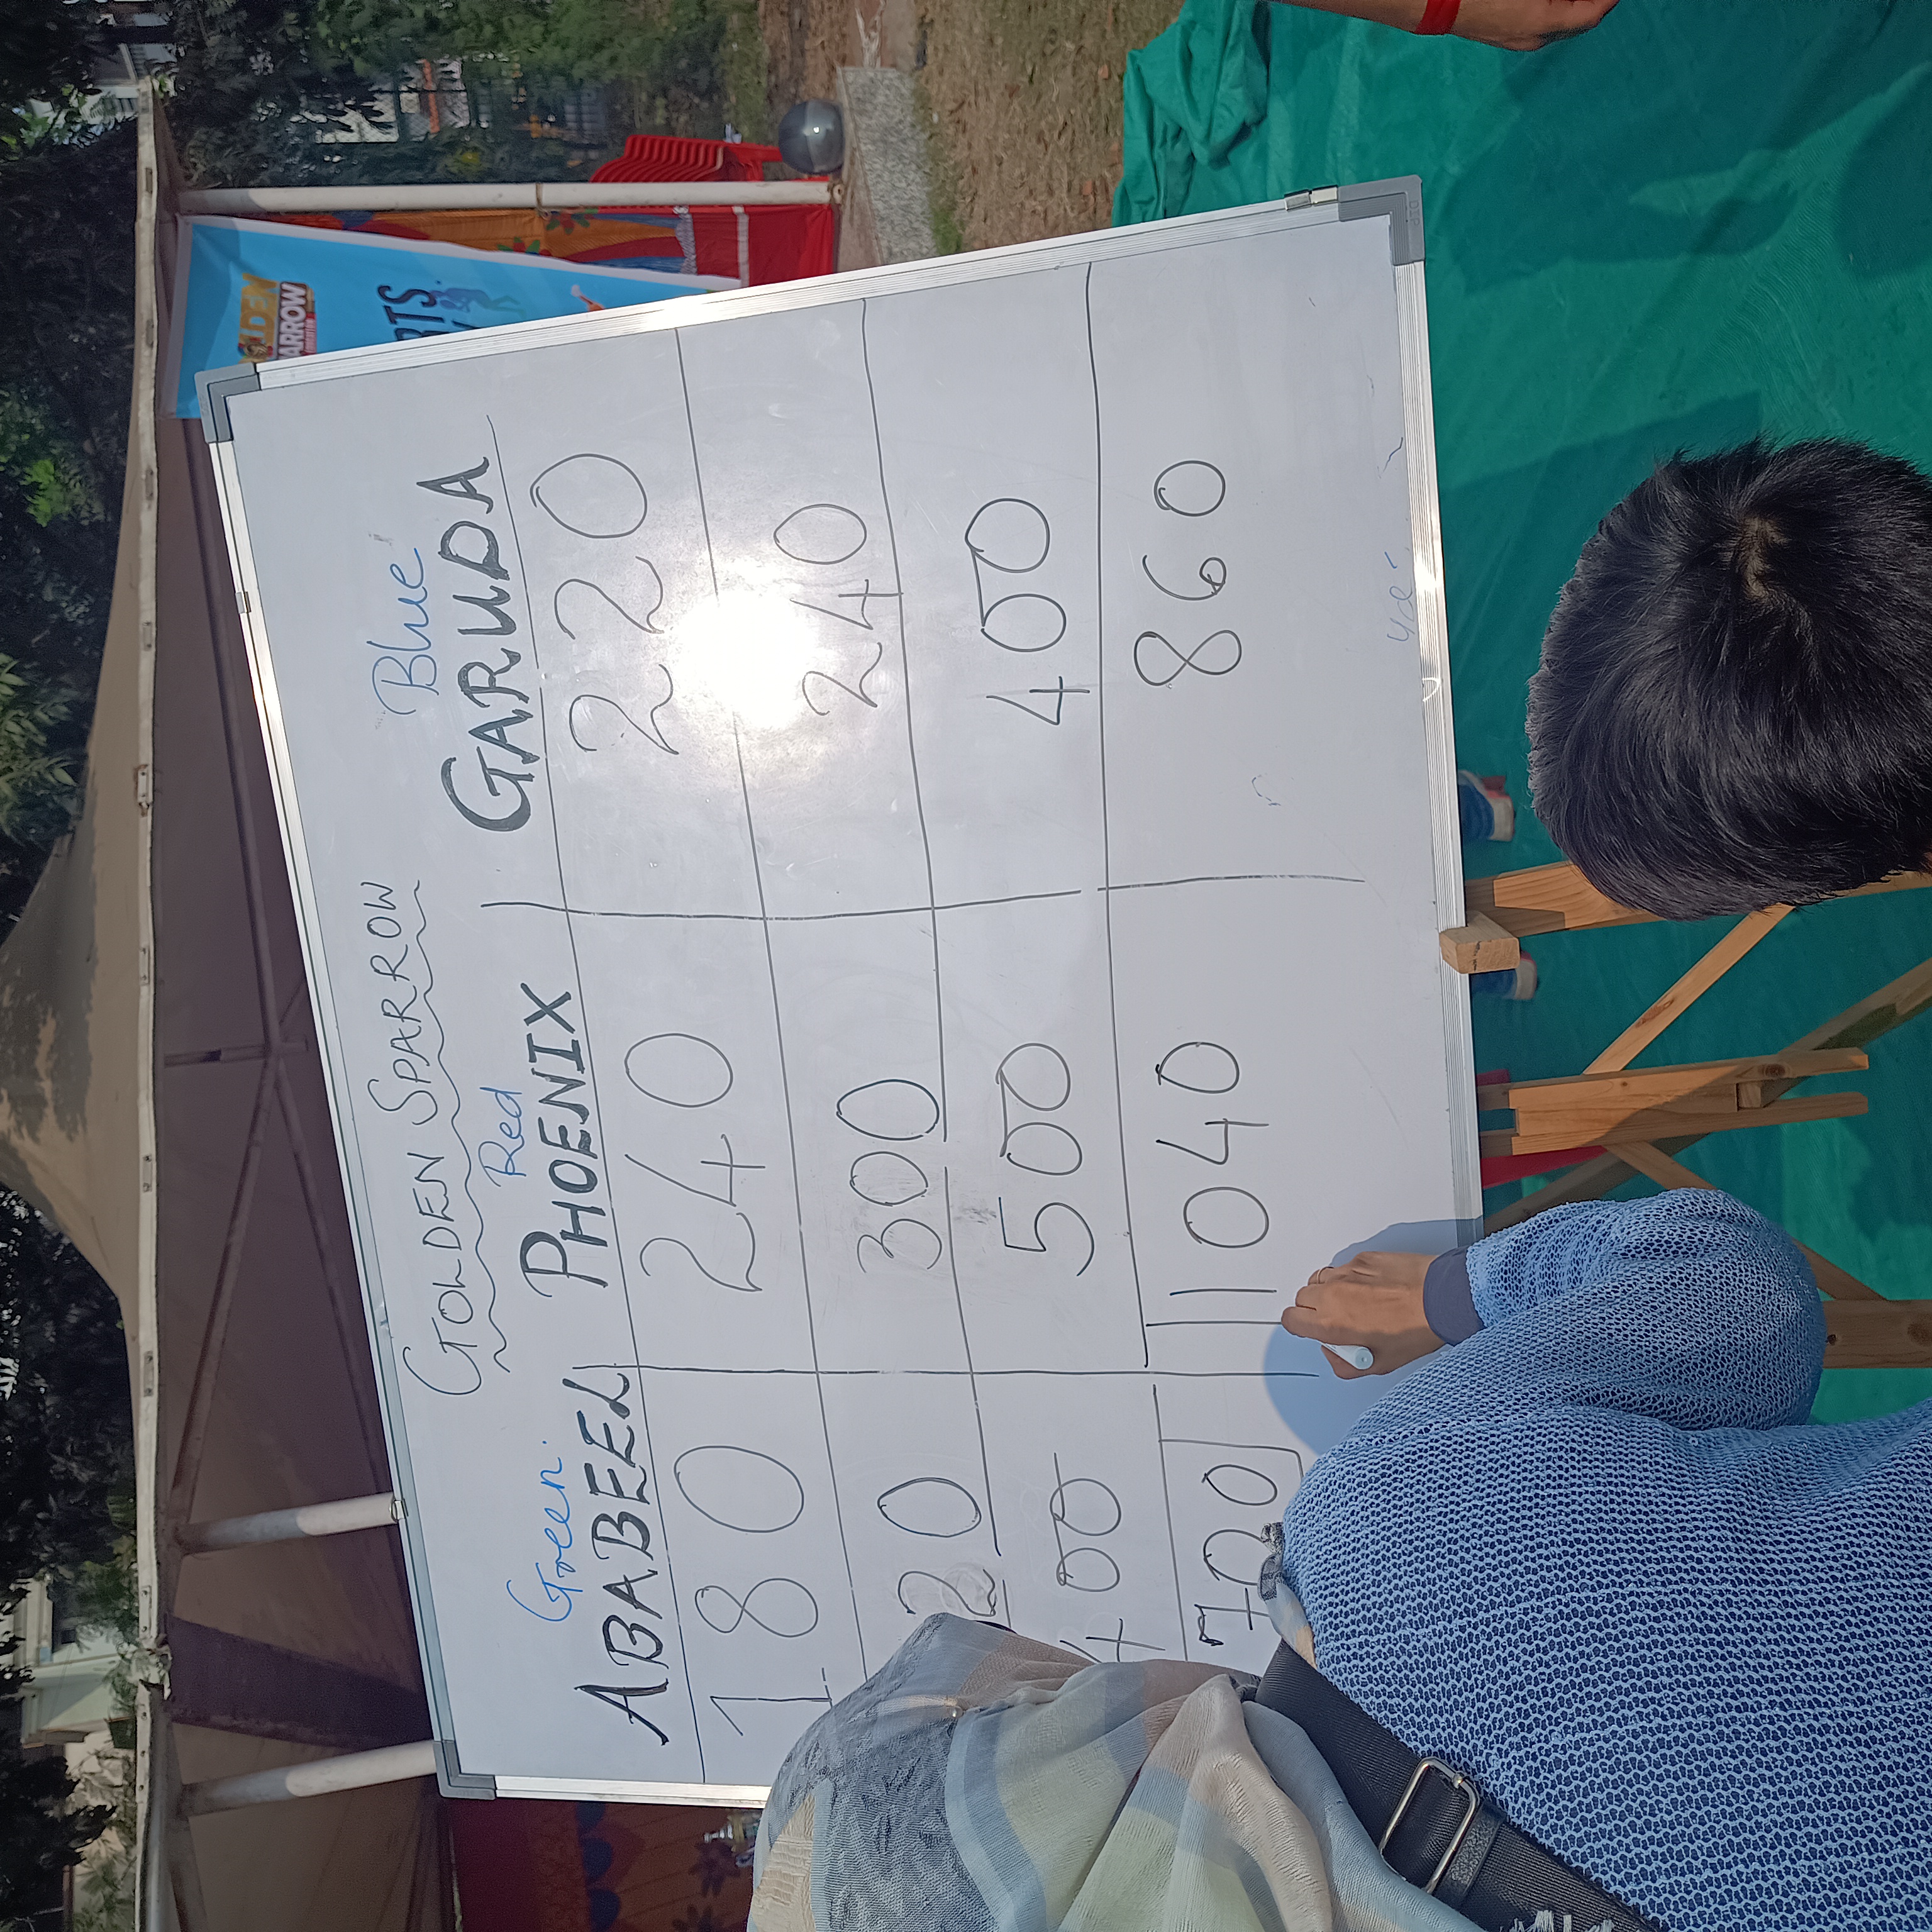 GOLDEN SPARROW
Green Red Blue
ABABEEL PHOENIX GARUDA
180 240 220
20 300 240
400 500 400
700 1040 860
OLDEN
ARROW
RTS